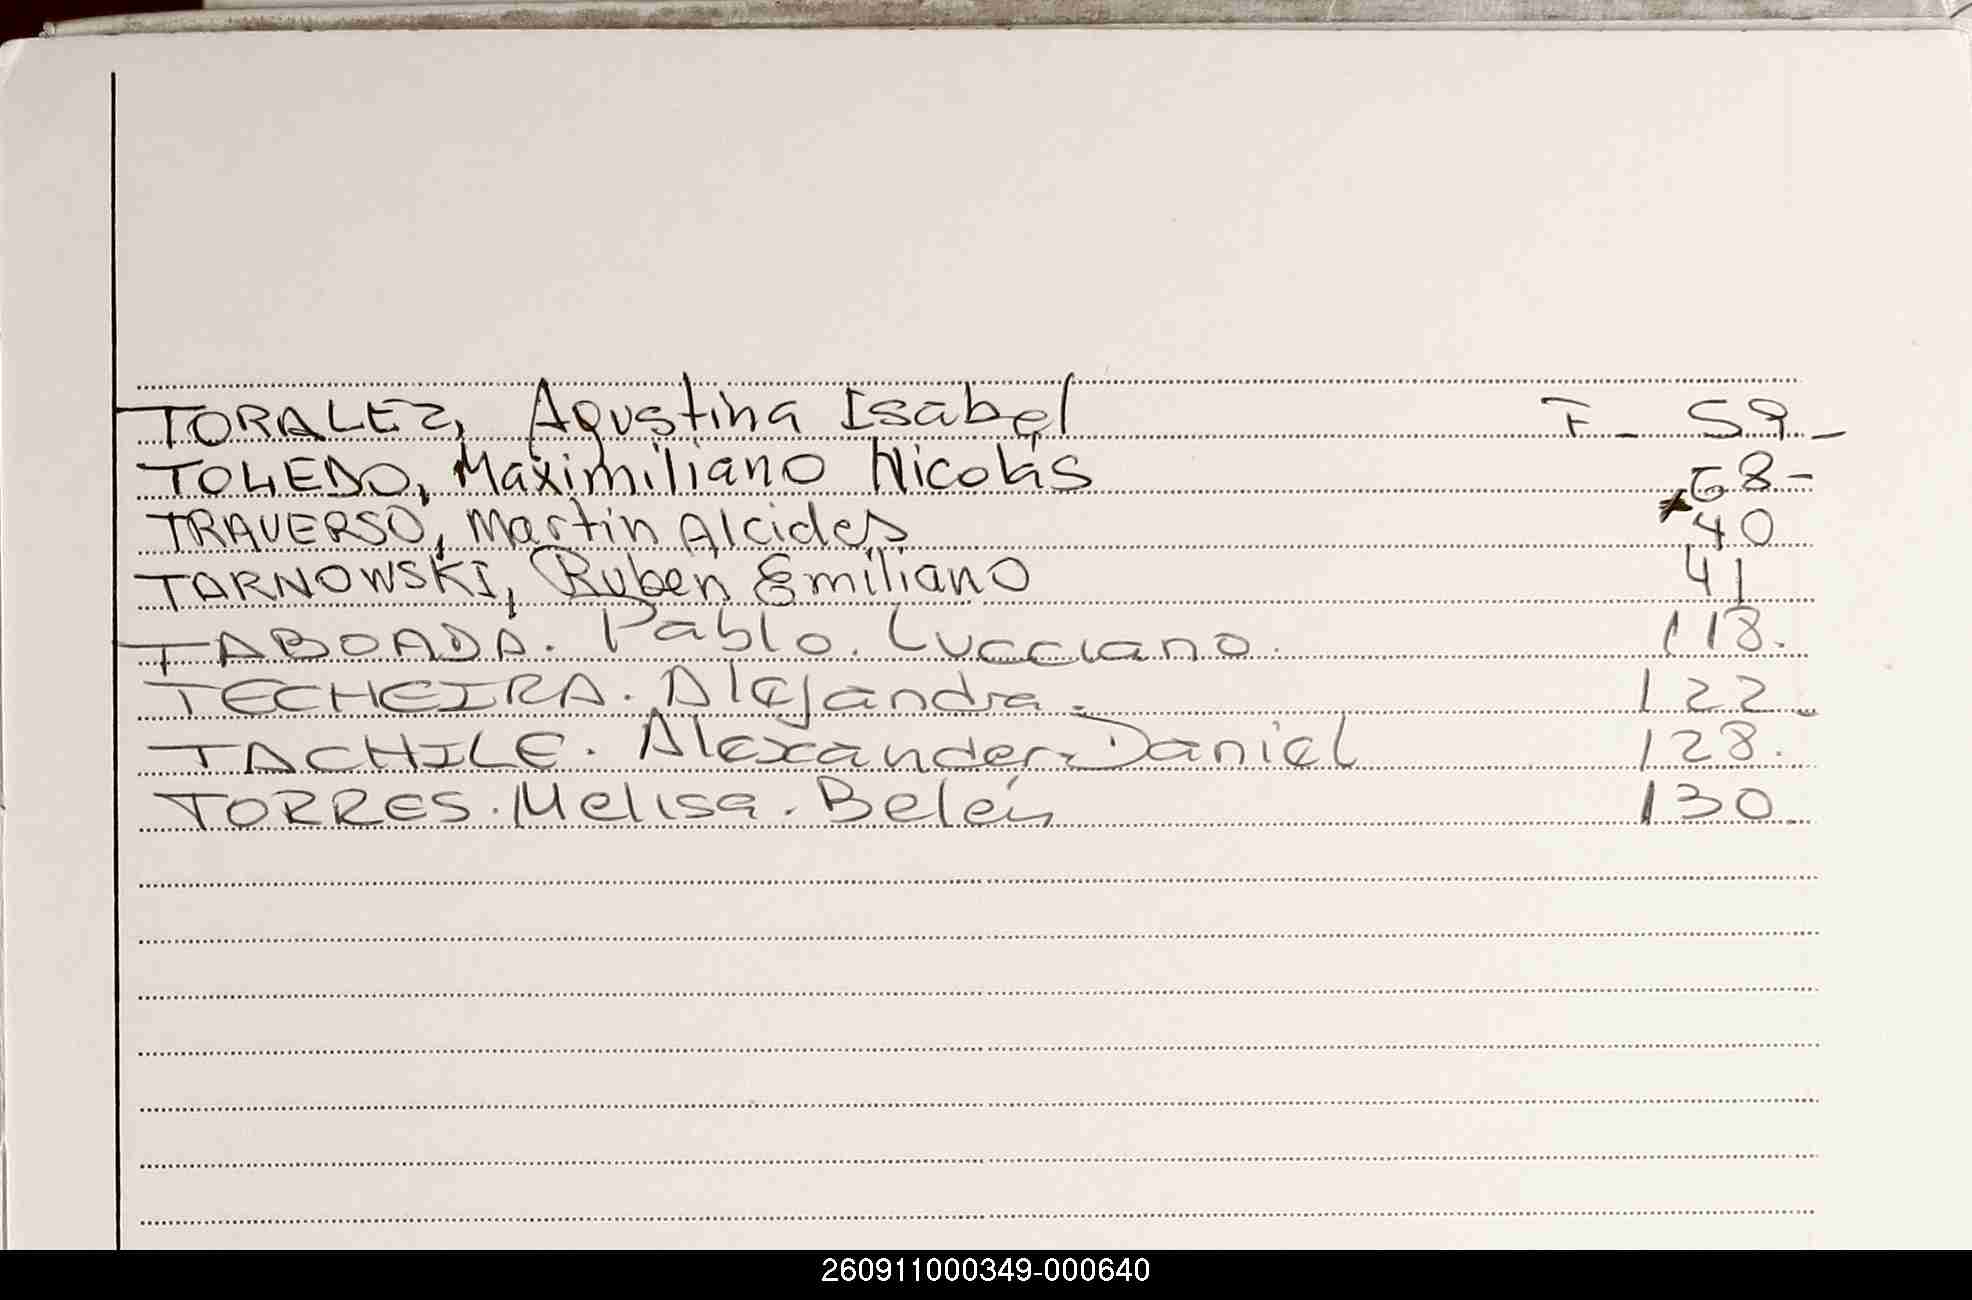 TORALEZ, Agustina Isabel F_ 59_
TOLEDO, Maximiliano Nicolás 68-
TRAVERSO, Martín Alcides 40
TARNOWSKI, Ruben Emiliano 41
TABOADA. Pablo. Lucciano. 118.
TECHEIRA. Alejandra. 122_
TACHILE. Alexander. Daniel 128.
TORRES. Melisa. Belén 130_
260911000349-000640